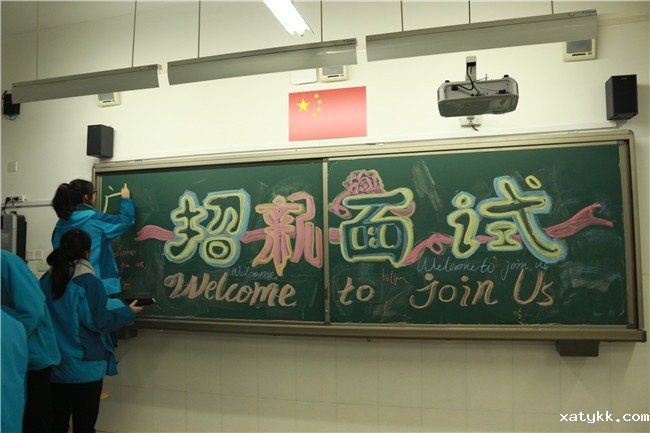 招新面试
Welcome
Welcome to join us
Welcome to join Us
xatykk.com